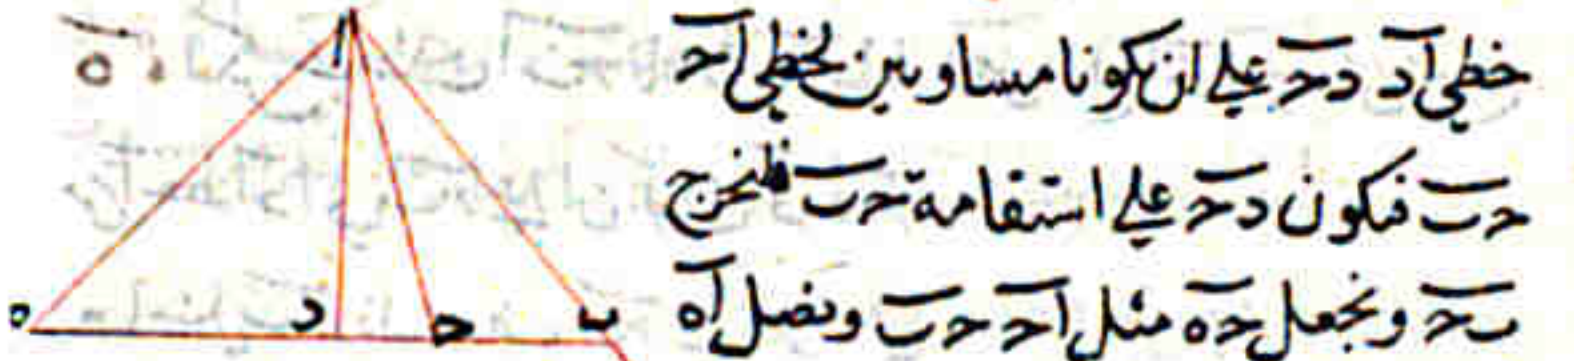 خطي اد دح علي ان يكونا مساويين لخطي اح
حب فيكون دح علي استقامة حب فلنخرج
بح ونجعل حه مثل اح حب ونصل اه
ا
ه د ح ب